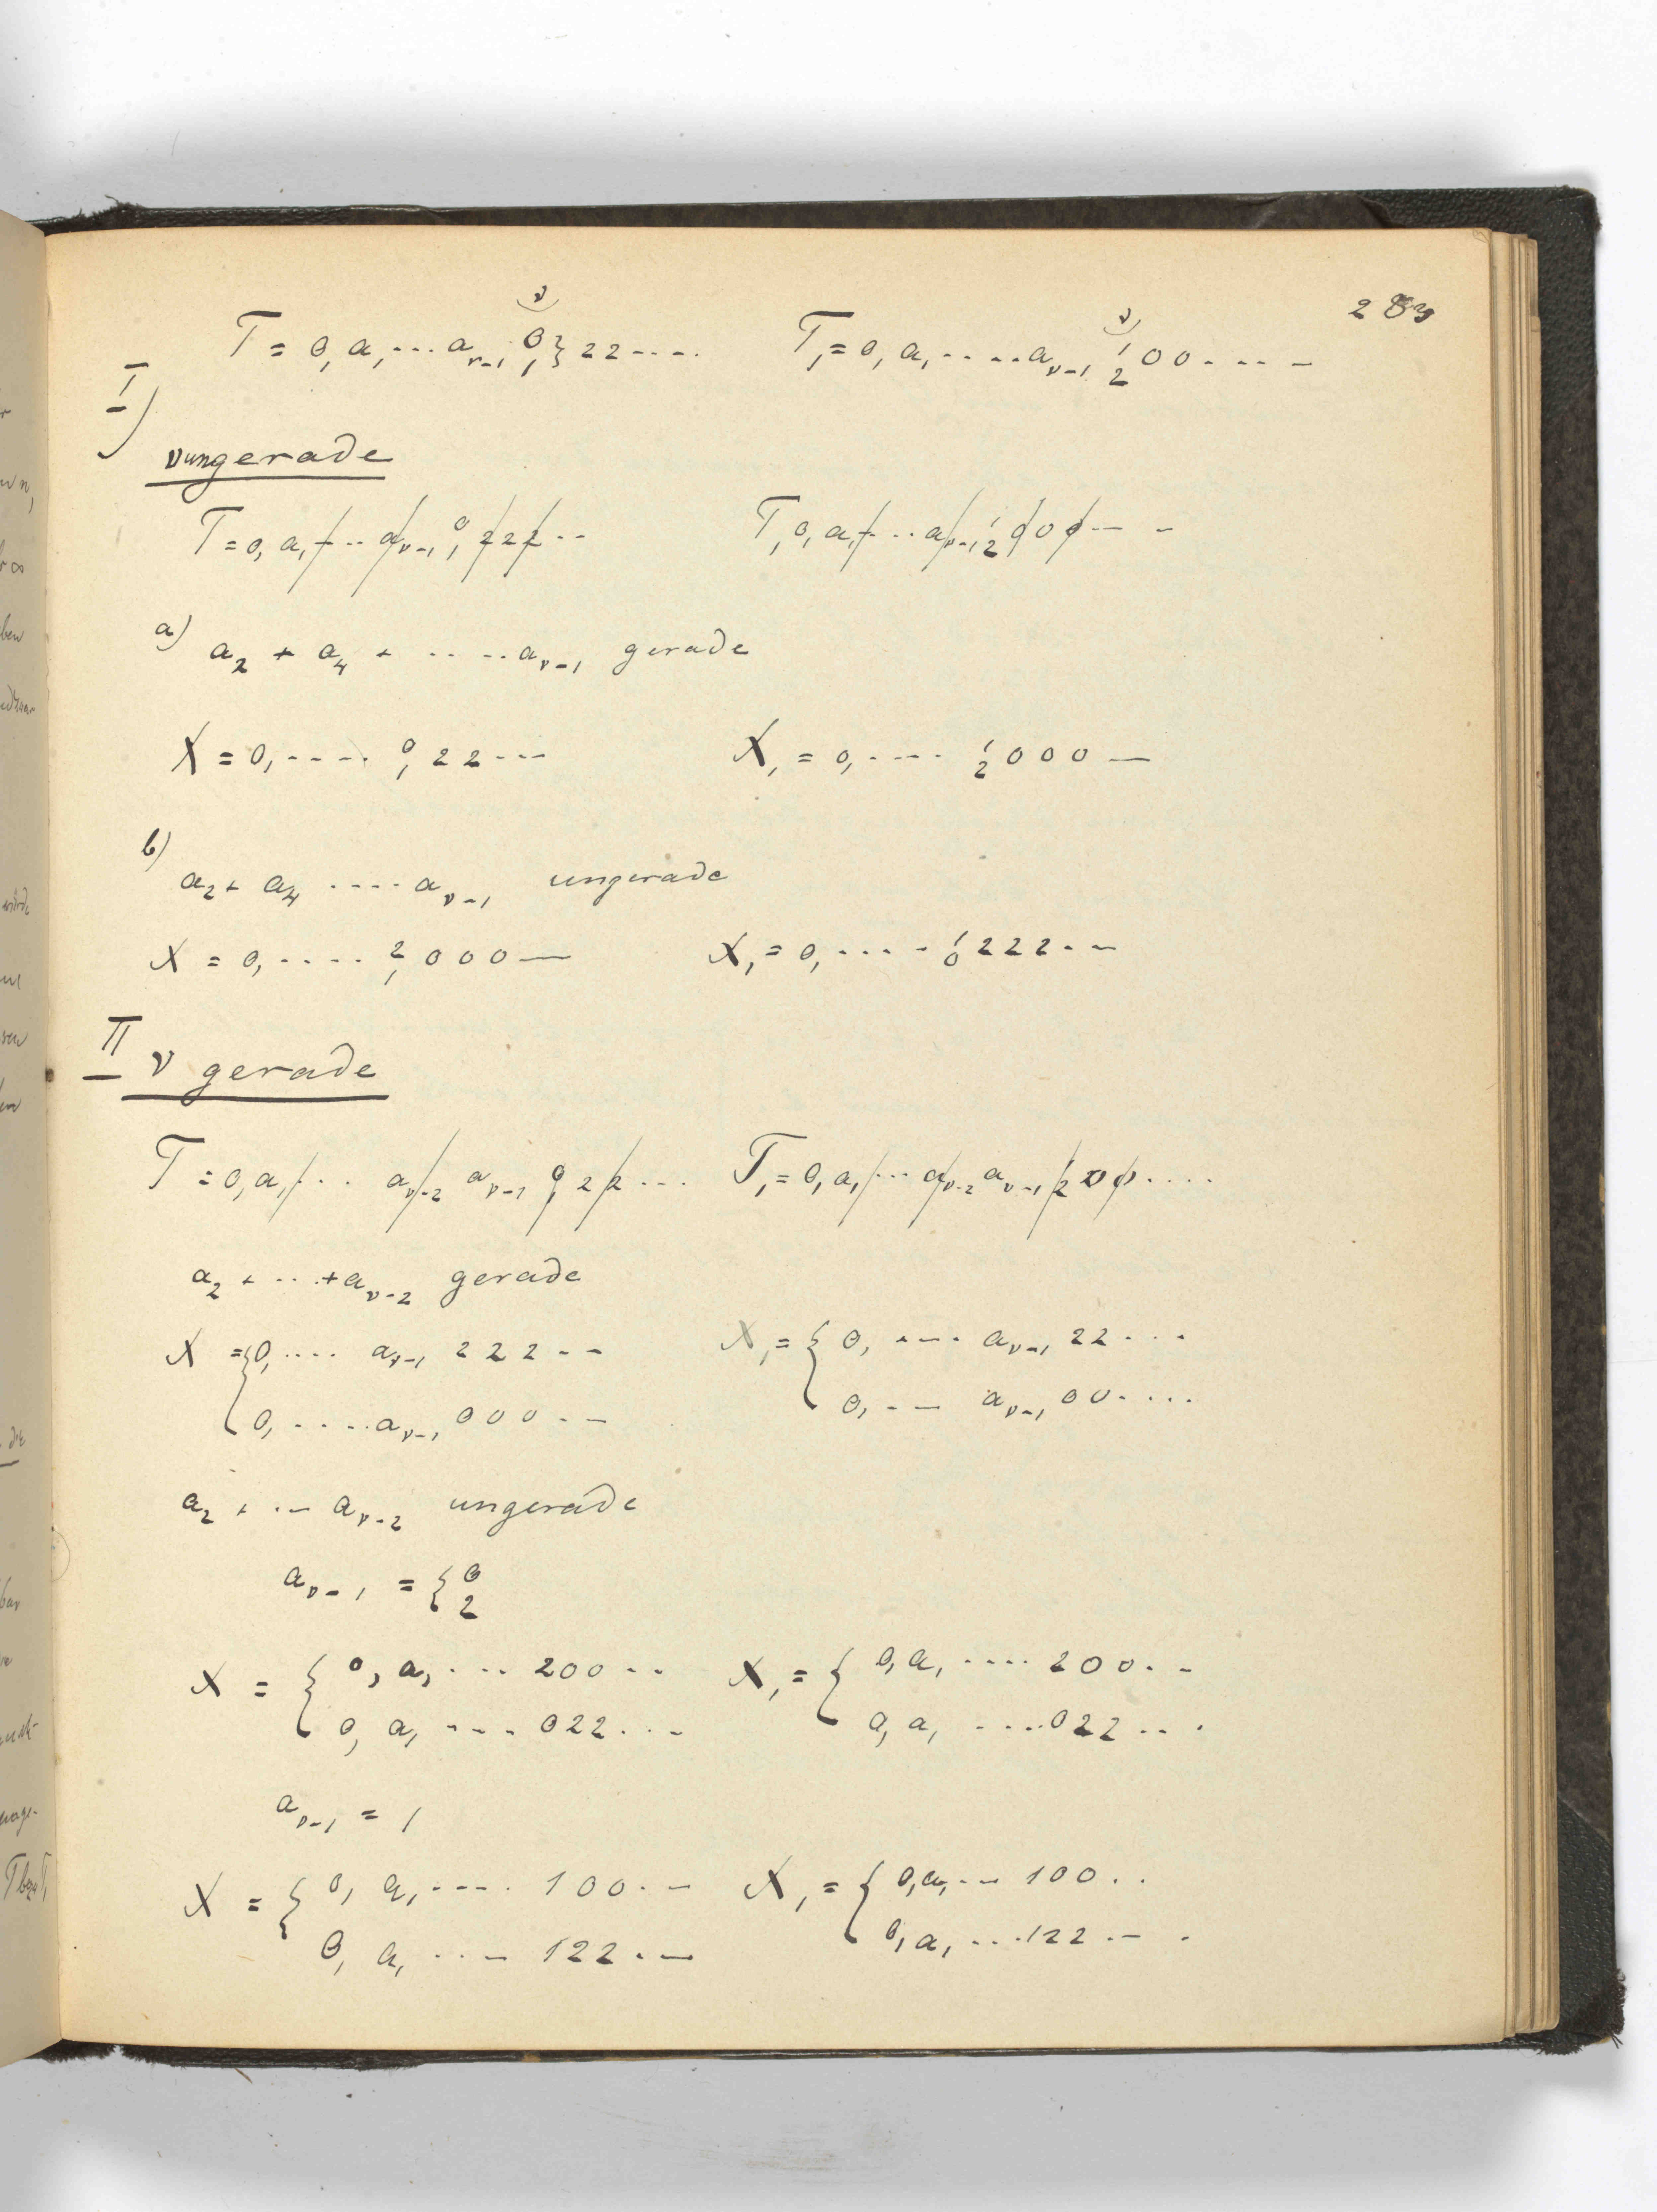 289
T = 0, a₁ ... a_{ν-1} \overset{ν}{{0 \atop 1}} } 2 2 ....
T₁ = 0, a₁ ..... a_{ν-1} \overset{ν}{{1 \atop 2}} 0 0 ....
I)
ν ungerade
T = 0, a₁ / ... a_{ν-1} / {0 \atop 1} 2 / 2 2 / ..
T₁ 0, a₁ / ... a_{ν-1} / {1 \atop 2} 0 / 0 0 / ..
a)
a₂ + a₄ + ..... a_{ν-1} gerade
X = 0, ..... {0 \atop 1} 2 2 ...
X₁ = 0, .... {1 \atop 2} 0 0 0 —
b)
a₂ + a₄ .... a_{ν-1} ungerade
X = 0, ..... {2 \atop 1} 0 0 0 —
X₁ = 0, ..... {1 \atop 0} 2 2 2 ..
II ν gerade
T = 0, a₁ / ... a_{ν-2} / a_{ν-1} {0 \atop 1} / 2 2 / ...
T₁ = 0, a₁ / ... a_{ν-2} / a_{ν-1} {1 \atop 2} / 0 0 / ....
a₂ + ... + a_{ν-2} gerade
X = { 0, .... a_{ν-1} 2 2 2 ..
0, .... a_{ν-1} 0 0 0 ..
X₁ = { 0, .... a_{ν-1} 2 2 ...
0, ... a_{ν-1} 0 0 ....
a₂ + ... a_{ν-2} ungerade
a_{ν-1} = { 0
2
X = { 0, a₁ ... 2 0 0 ..
0, a₁ .... 0 2 2 ...
X₁ = { 0, a₁ .... 2 0 0 ..
0, a₁ .... 0 2 2 ...
a_{ν-1} = 1
X = { 0, a₁ .... 1 0 0 ..
0, a₁ ... 1 2 2 ..
X₁ = { 0, a₁ ... 1 0 0 ..
0, a₁ ... 1 2 2 ...